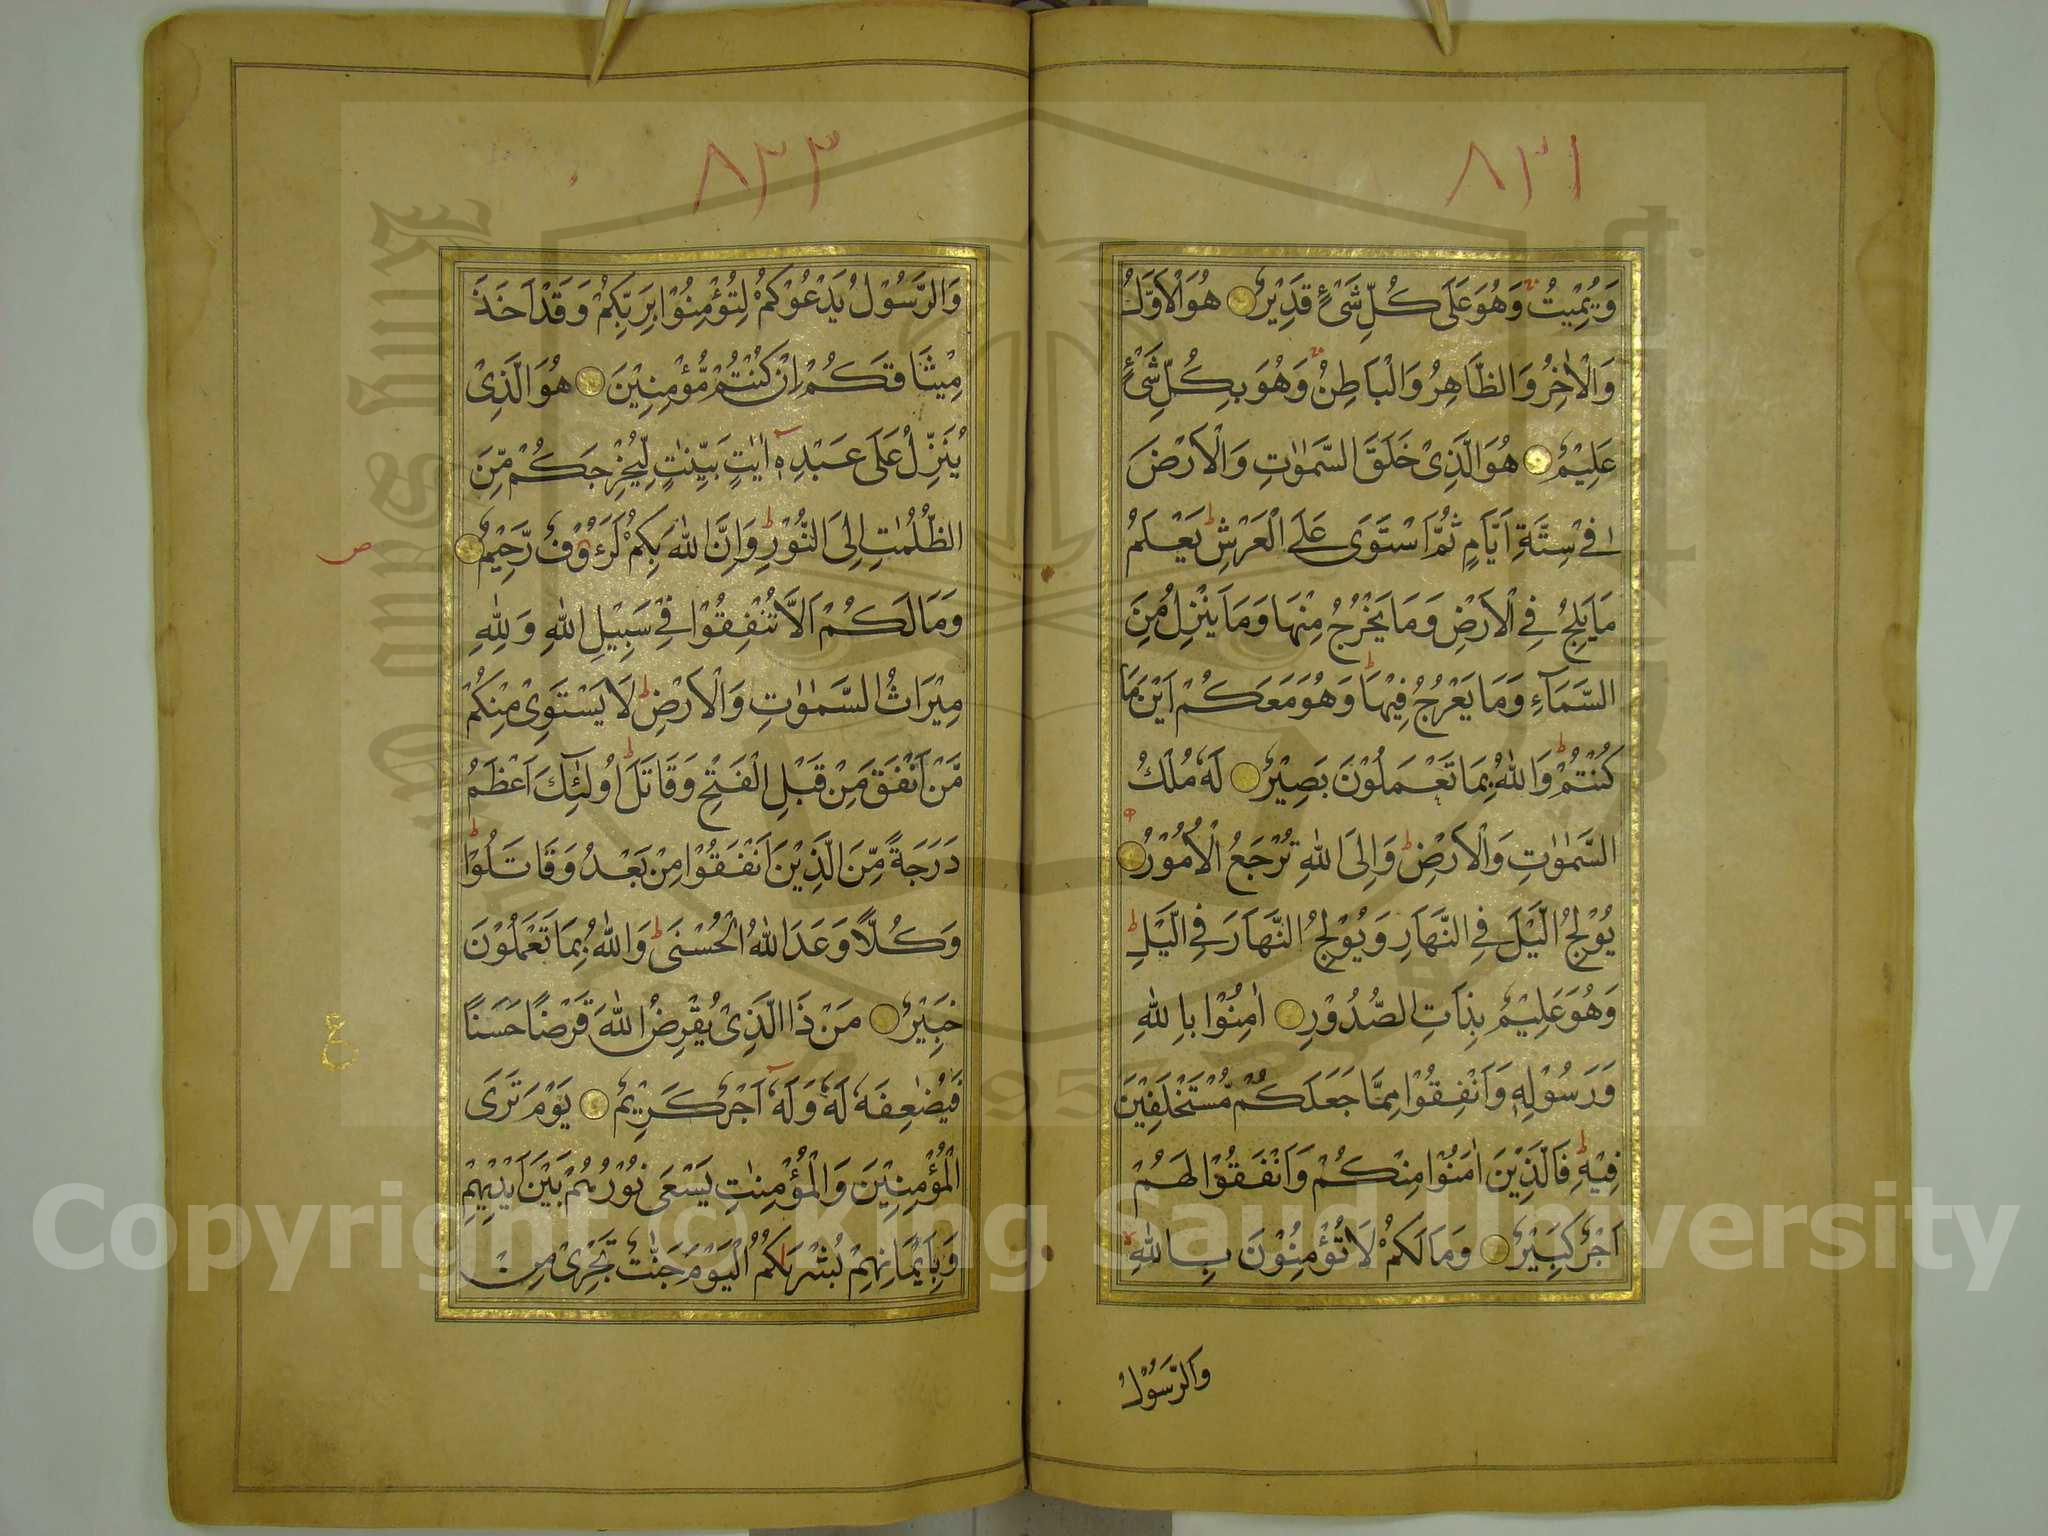 ٨٣١
وَيُمِيْتُ وَهُوَ عَلَى كُلِّ شَيْءٍ قَدِيْرٌ هُوَ الْاَوَّلُ
وَالْاٰخِرُ وَالظَّاهِرُ وَالْبَاطِنُ وَهُوَ بِكُلِّ شَيْءٍ
عَلِيْمٌ هُوَ الَّذِىْ خَلَقَ السَّمٰوٰتِ وَالْاَرْضَ
فِىْ سِتَّةِ اَيَّامٍ ثُمَّ اسْتَوَى عَلَى الْعَرْشِ يَعْلَمُ
مَا يَلِجُ فِى الْاَرْضِ وَمَا يَخْرُجُ مِنْهَا وَمَا يَنْزِلُ مِنَ
السَّمَآءِ وَمَا يَعْرُجُ فِيْهَا وَهُوَ مَعَكُمْ اَيْنَ مَا
كُنْتُمْ وَاللهُ بِمَا تَعْمَلُوْنَ بَصِيْرٌ لَهٗ مُلْكُ
السَّمٰوٰتِ وَالْاَرْضِ وَاِلَى اللهِ تُرْجَعُ الْاُمُوْرُ
يُوْلِجُ الَّيْلَ فِى النَّهَارِ وَيُوْلِجُ النَّهَارَ فِى الَّيْلِ
وَهُوَ عَلِيْمٌ بِذَاتِ الصُّدُوْرِ اٰمِنُوْا بِاللهِ
وَرَسُوْلِهٖ وَاَنْفِقُوْا مِمَّا جَعَلَكُمْ مُّسْتَخْلَفِيْنَ
فِيْهِ فَالَّذِيْنَ اٰمَنُوْا مِنْكُمْ وَاَنْفَقُوْا لَهُمْ
اَجْرٌ كَبِيْرٌ وَمَا لَكُمْ لَا تُؤْمِنُوْنَ بِاللهِ
وَالرَّسُوْلُ
٨٣٣
وَالرَّسُوْلُ يَدْعُوْكُمْ لِتُؤْمِنُوْا بِرَبِّكُمْ وَقَدْ اَخَذَ
مِيْثَاقَكُمْ اِنْ كُنْتُمْ مُّؤْمِنِيْنَ هُوَ الَّذِىْ
يُنَزِّلُ عَلَى عَبْدِهٖ اٰيٰتٍ بَيِّنٰتٍ لِّيُخْرِجَكُمْ مِّنَ
الظُّلُمٰتِ اِلَى النُّوْرِ وَاِنَّ اللهَ بِكُمْ لَرَءُوْفٌ رَّحِيْمٌ
ص
وَمَا لَكُمْ اَلَّا تُنْفِقُوْا فِىْ سَبِيْلِ اللهِ وَلِلهِ
مِيْرَاثُ السَّمٰوٰتِ وَالْاَرْضِ لَا يَسْتَوِىْ مِنْكُمْ
مَّنْ اَنْفَقَ مِنْ قَبْلِ الْفَتْحِ وَقَاتَلَ اُولٰٓئِكَ اَعْظَمُ
دَرَجَةً مِّنَ الَّذِيْنَ اَنْفَقُوْا مِنْ بَعْدُ وَقَاتَلُوْا
وَكُلًّا وَعَدَ اللهُ الْحُسْنَى وَاللهُ بِمَا تَعْمَلُوْنَ
خَبِيْرٌ مَنْ ذَا الَّذِىْ يُقْرِضُ اللهَ قَرْضًا حَسَنًا
ع
فَيُضٰعِفَهٗ لَهٗ وَلَهٗ اَجْرٌ كَرِيْمٌ يَوْمَ تَرَى
الْمُؤْمِنِيْنَ وَالْمُؤْمِنٰتِ يَسْعَى نُوْرُهُمْ بَيْنَ اَيْدِيْهِمْ
وَبِاَيْمَانِهِمْ بُشْرٰىكُمُ الْيَوْمَ جَنّٰتٌ تَجْرِىْ مِنْ
Copyright © King Saud University